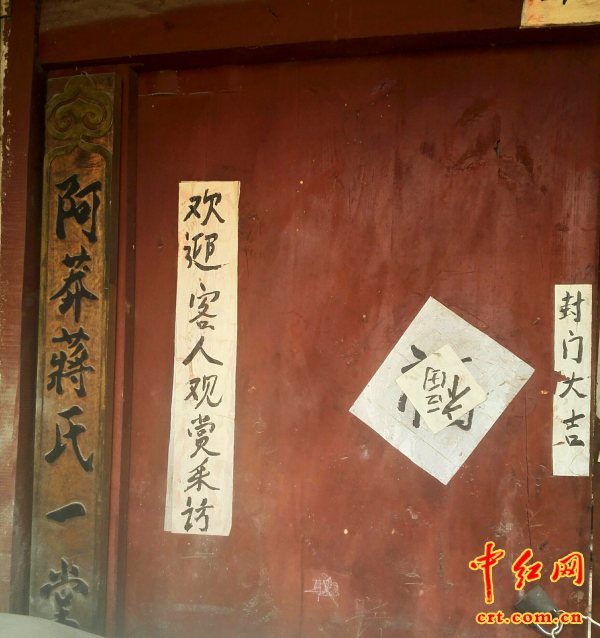 阿莽蒋氏一堂
欢迎客人观赏采访
福
封门大吉
中红网
crt.com.cn